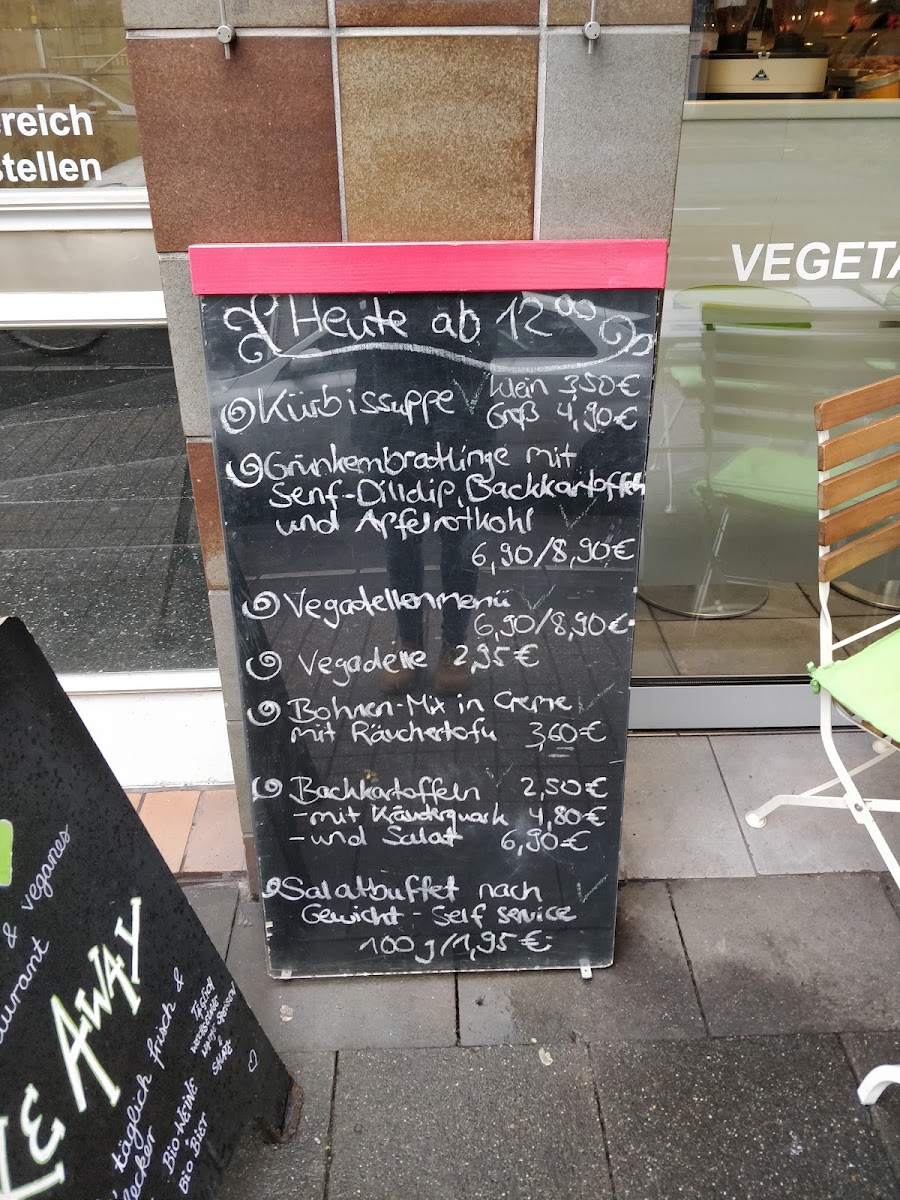 ereich
stellen
VEGETA
Heute ab 12⁰⁰
Kürbissuppe ✓ Klein 3,50€
Groß 4,90€
Grünkernbratlinge mit
Senf-Dilldip, Backkartoffeln
und Apfelrotkohl ✓
6,90/8,90€
Vegadellenmenü ✓
6,90/8,90€
Vegadelle 2,95€
Bohnen-Mix in Creme ✓
mit Räuchertofu 3,60€
Backkartoffeln ✓ 2,50€
-mit Kräuterquark 4,80€
-und Salat 6,90€
Salatbuffet nach ✓
Gewicht - Self service
100g/1,95€
& veganes
aurant
KE AWAY
täglich frisch &
lecker
TÄGLICH
WECHSELNDE
WARME SPEISEN
& SALATE
BIO-WEINE
BIO BIER